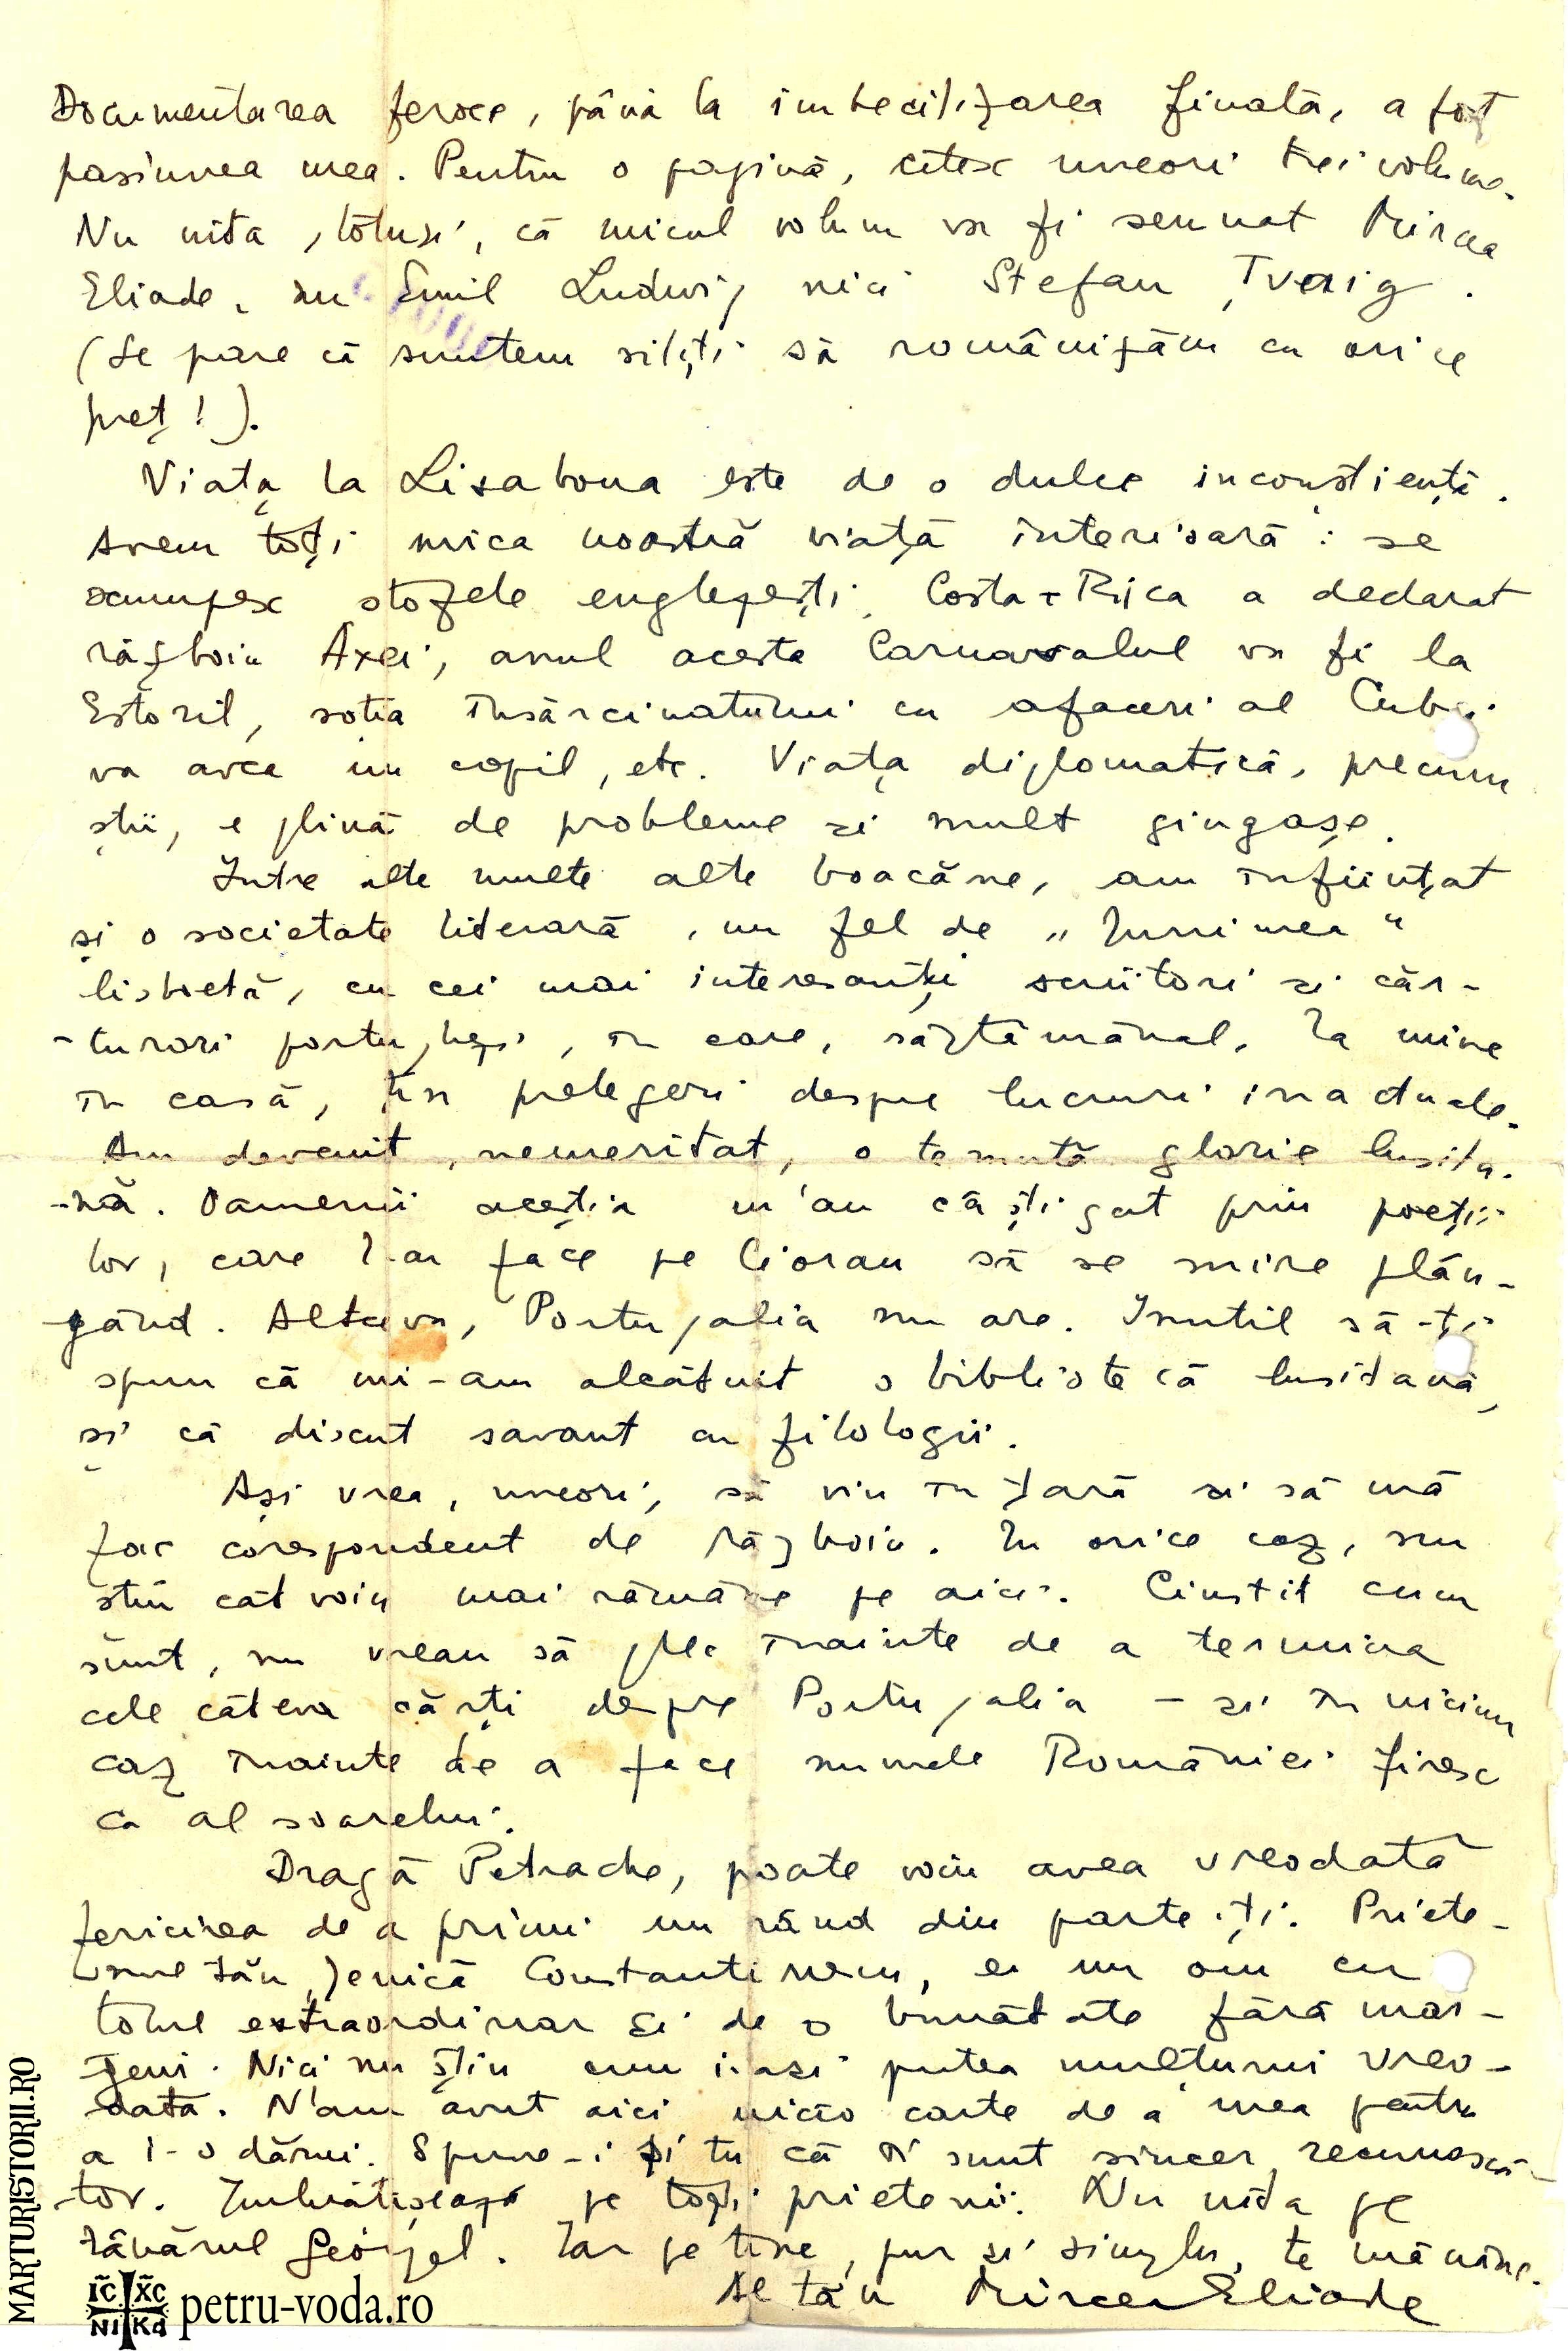 Documentarea feroce, până la imbecilizarea finală, a fost
pasiunea mea. Pentru o pagină, citesc uneori trei volume.
Nu uita, totuși, că micul volum va fi semnat Mircea
Eliade, nu Emil Ludwig nici Stefan Țvaig.
(Se pare că suntem siliți să românizăm cu orice
preț!).
Viața la Lisabona este de o dulce inconștiență.
Avem toți mica noastră viață interioară: se
scumpesc stofele englezești, Costa-Rica a declarat
războiu Axei, anul acesta Carnavalul va fi la
Estoril, soția însărcinatului cu afaceri al Cubei
va avea un copil, etc. Viața diplomatică, precum
știi, e plină de probleme și mult gingașe.
Între alte multe alte boacăne, am înființat
și o societate literară, un fel de „Junimea"
lisboetă, cu cei mai interesanți scriitori și căr-
-turari portughezi, în care, săptămânal, la mine
în casă, țin prelegeri despre lucruri inactuale.
Am devenit, nemeritat, o temută glorie lusita-
-nă. Oamenii aceștia m'au câștigat prin poeții
lor, care l-ar face pe Cioran să se mire plân-
-gând. Altceva, Portugalia nu are. Inutil să-ți
spun că mi-am alcătuit o bibliotecă lusitană,
și că discut savant cu filologii.
Ași vrea, uneori, să viu în țară și să mă
fac corespondent de războiu. În orice caz, nu
știu cât voiu mai rămâne pe aici. Cinstit cum
sunt, nu vreau să plec înainte de a termina
cele câteva cărți despre Portugalia - și în niciun
caz înainte de a face numele României firesc
ca al soarelui.
Dragă Petrache, poate voiu avea vreodată
fericirea de a primi un rând din parte-ți. Priete-
-nul tău, Jenică Constantinescu, e un om cu
totul extraordinar și de o bunătate fără mar-
-geni. Nici nu știu cum i-ași putea mulțumi vreo-
-dată. N'am avut aici nicio carte de a mea pentru
a i-o dărui. Spune-i și tu că îi sunt sincer recunoscă-
-tor. Îmbrățișează pe toți prietenii. Nu uita pe
tânărul Georgel. Iar pe tine, pur și simplu, te mănânc.
Al tău Mircea Eliade
MARTURISTORII.RO
IC XC
NI KA
petru-voda.ro